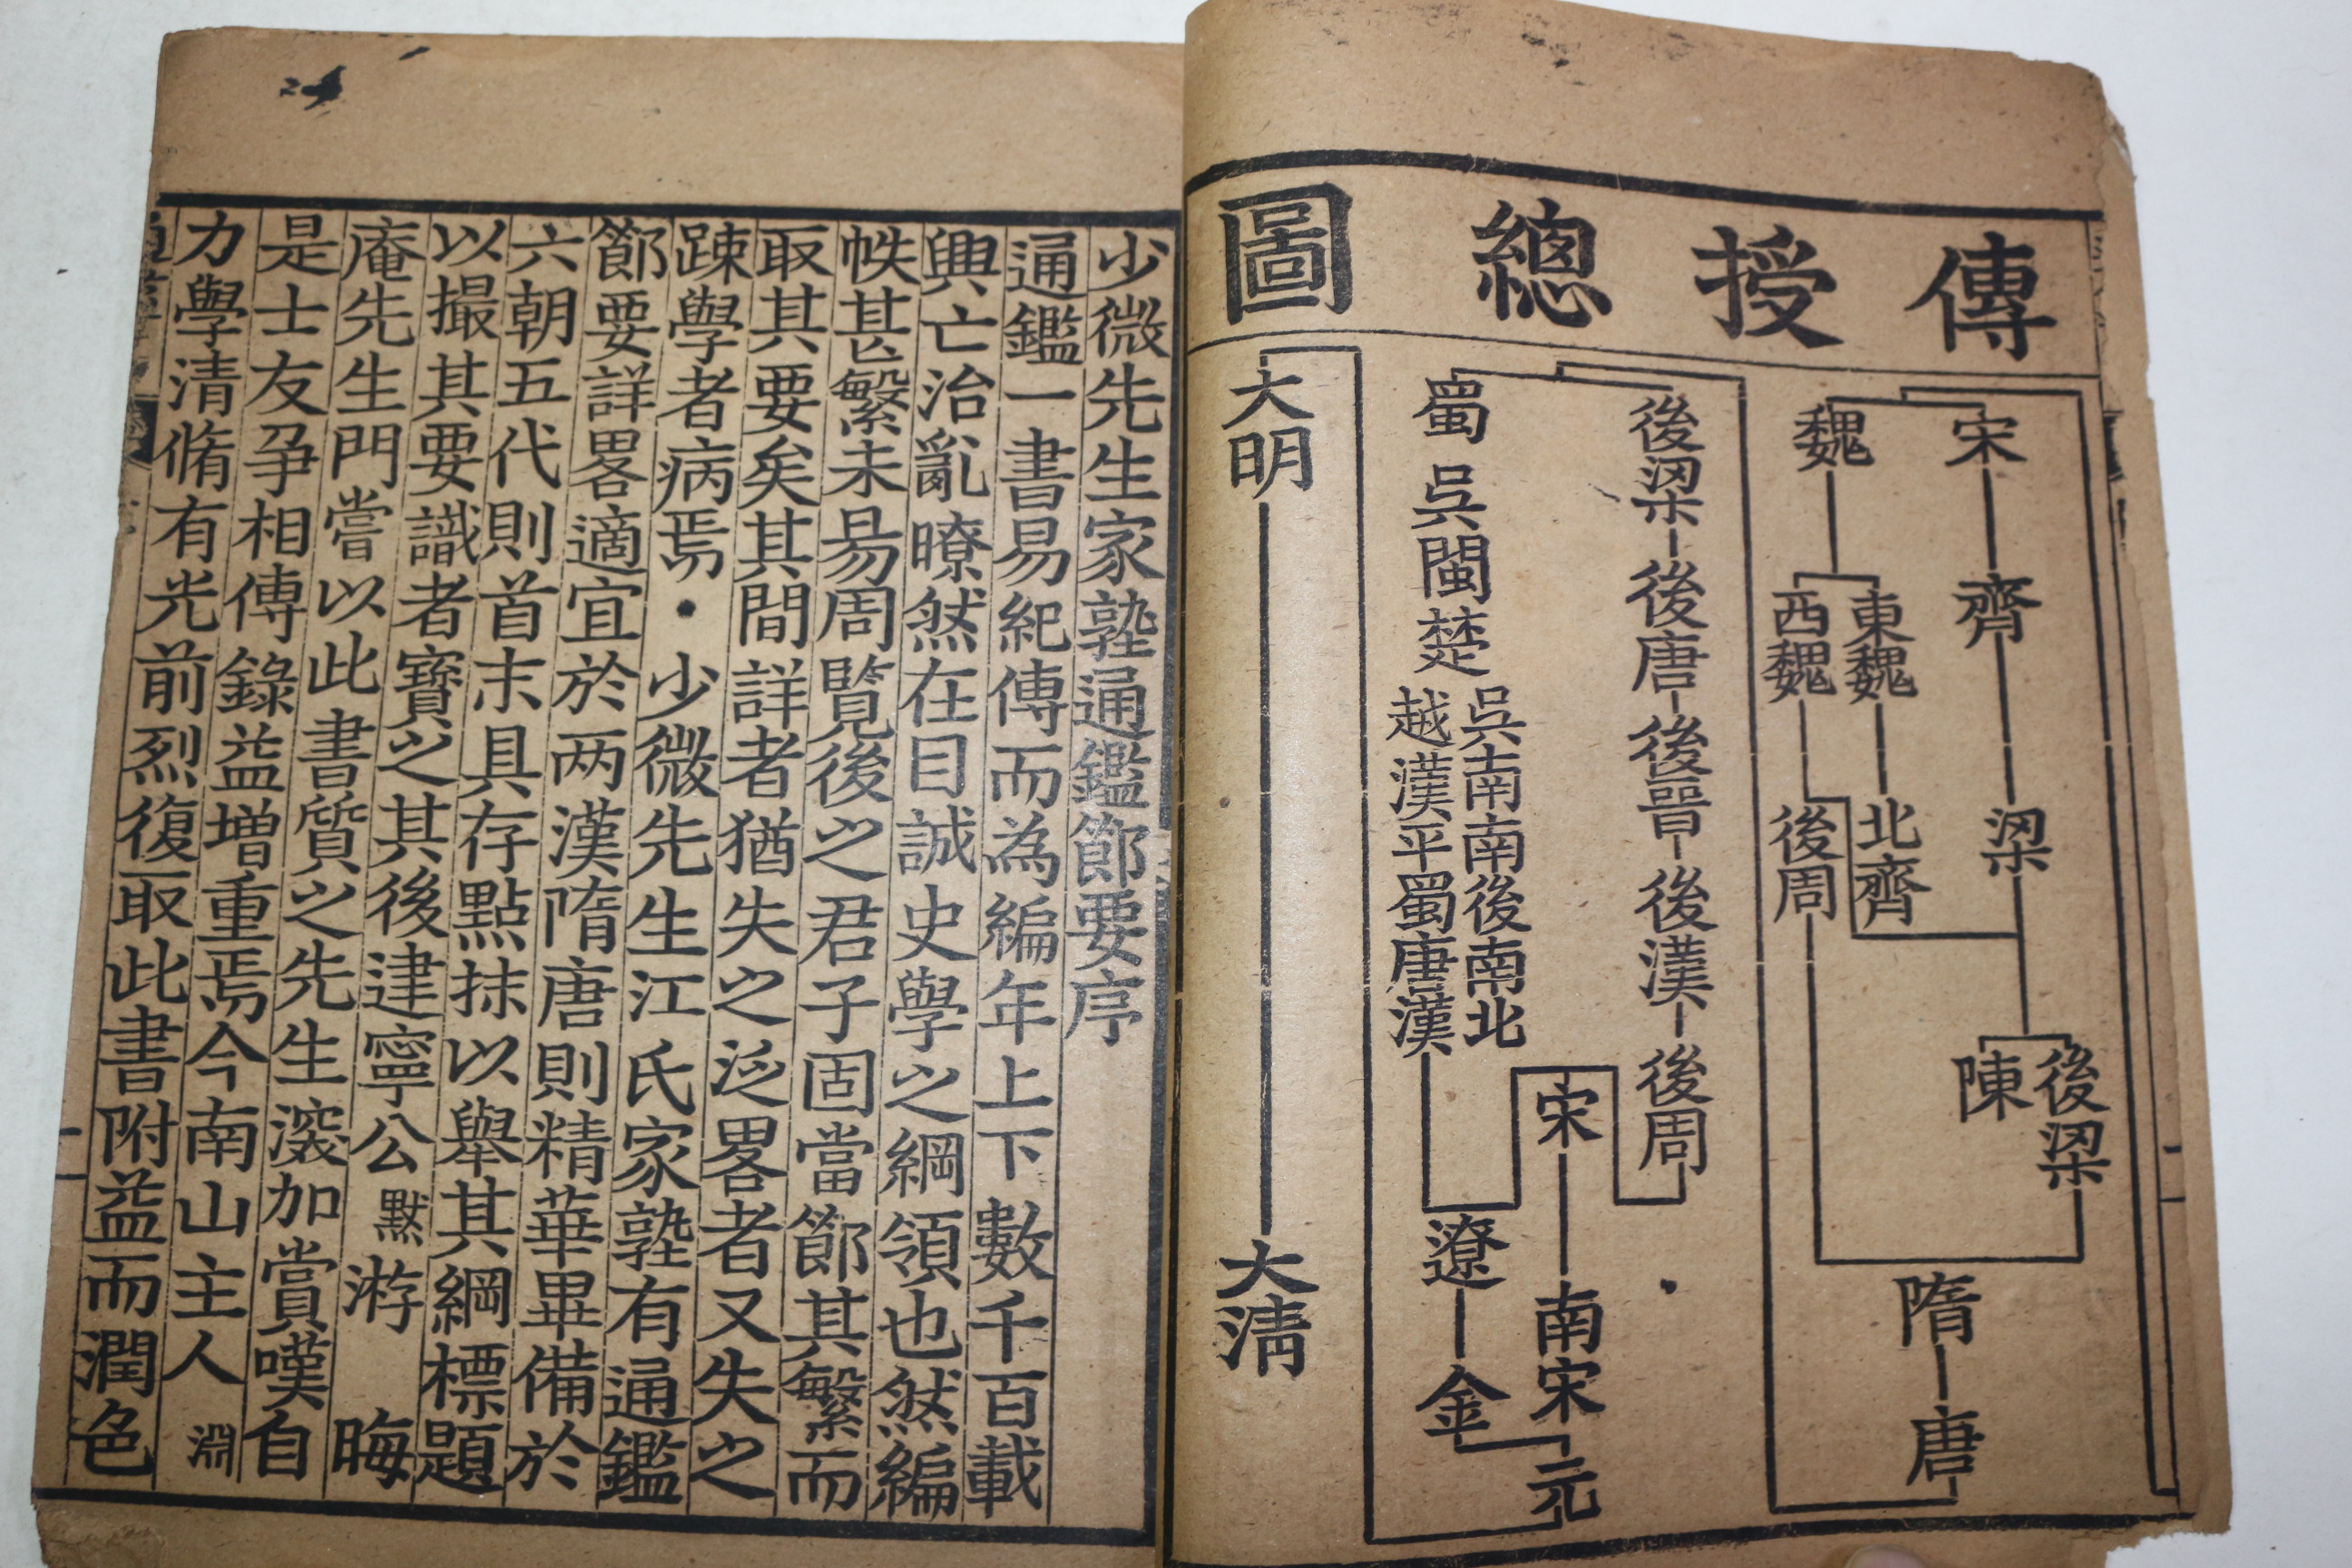 傳授總圖
宋
齊
梁
後梁
陳
魏
東魏
西魏
北齊
後周
隋
唐
後梁
後唐
後晉
後漢
後周
蜀
吳
閩
楚
吳南南後南北
越漢平蜀唐漢
宋
南宋
遼
金
元
大明
大淸
少微先生家塾通鑑節要序
通鑑一書易紀傳而為編年上下數千百載
興亡治亂瞭然在目誠史學之綱領也然編
帙甚繁未易周覽後之君子固當節其繁而
取其要矣其間詳者猶失之泛畧者又失之
踈學者病焉•少微先生江氏家塾有通鑑
節要詳畧適宜於两漢隋唐則精華畢備於
六朝五代則首末具存點抹以舉其綱標題
以撮其要識者寶之其後建寧公默游晦
庵先生門嘗以此書質之先生深加賞嘆自
是士友爭相傳錄益增重焉今南山主人淵
力學清脩有光前烈復取此書附益而潤色